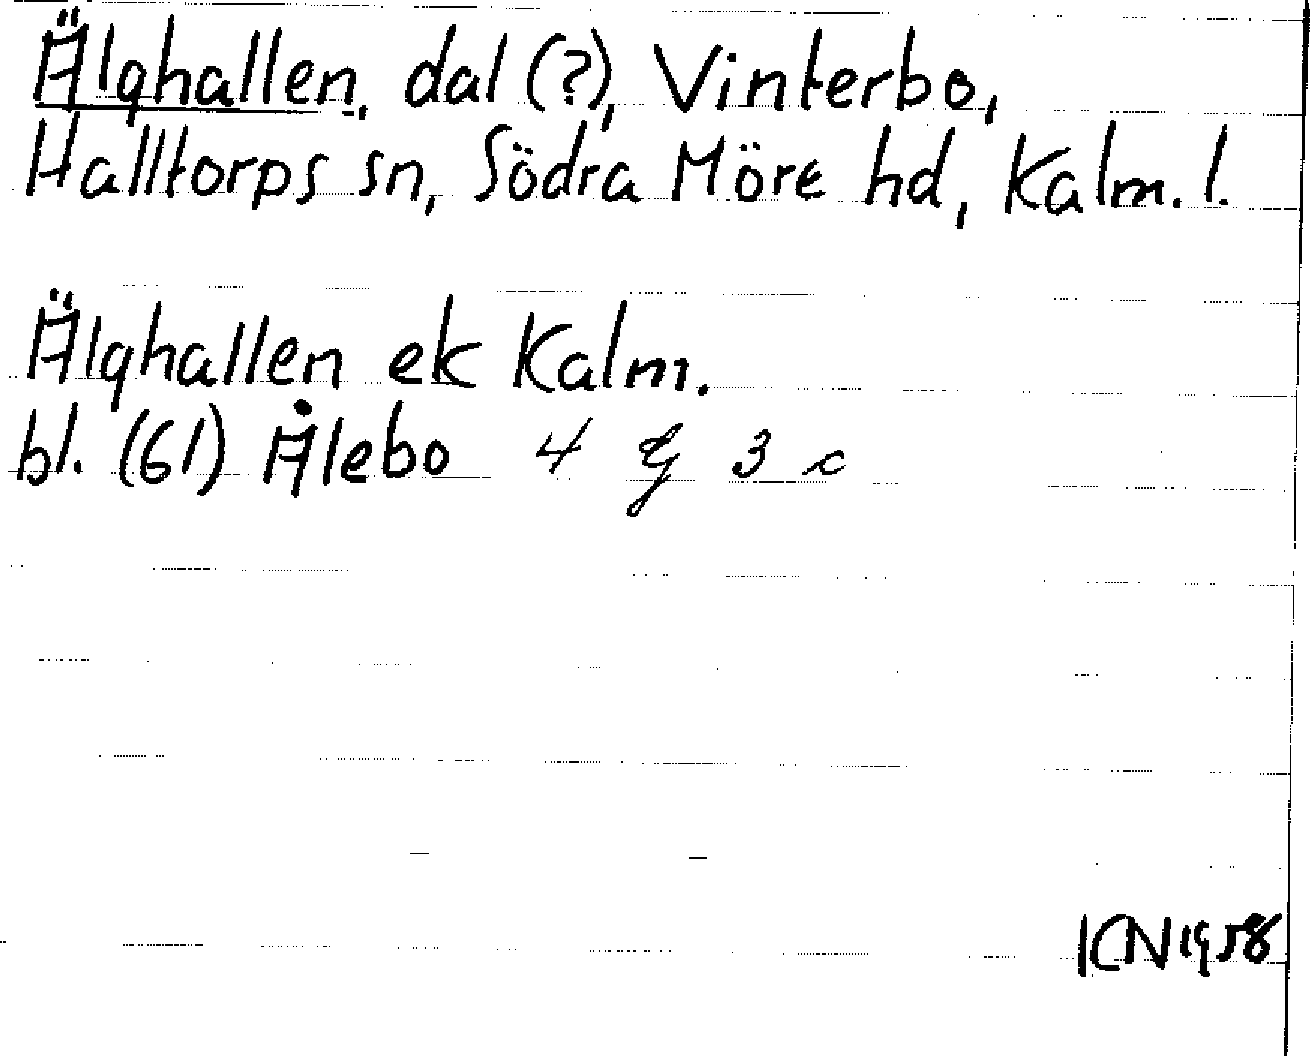 Älghallen, dal (?), Vinterbo,
Halltorps sn, Södra Möre hd, Kalm. l.
Älghallen ek Kalm.
bl. (61) Ålebo 4 G 3 c
KN 1958